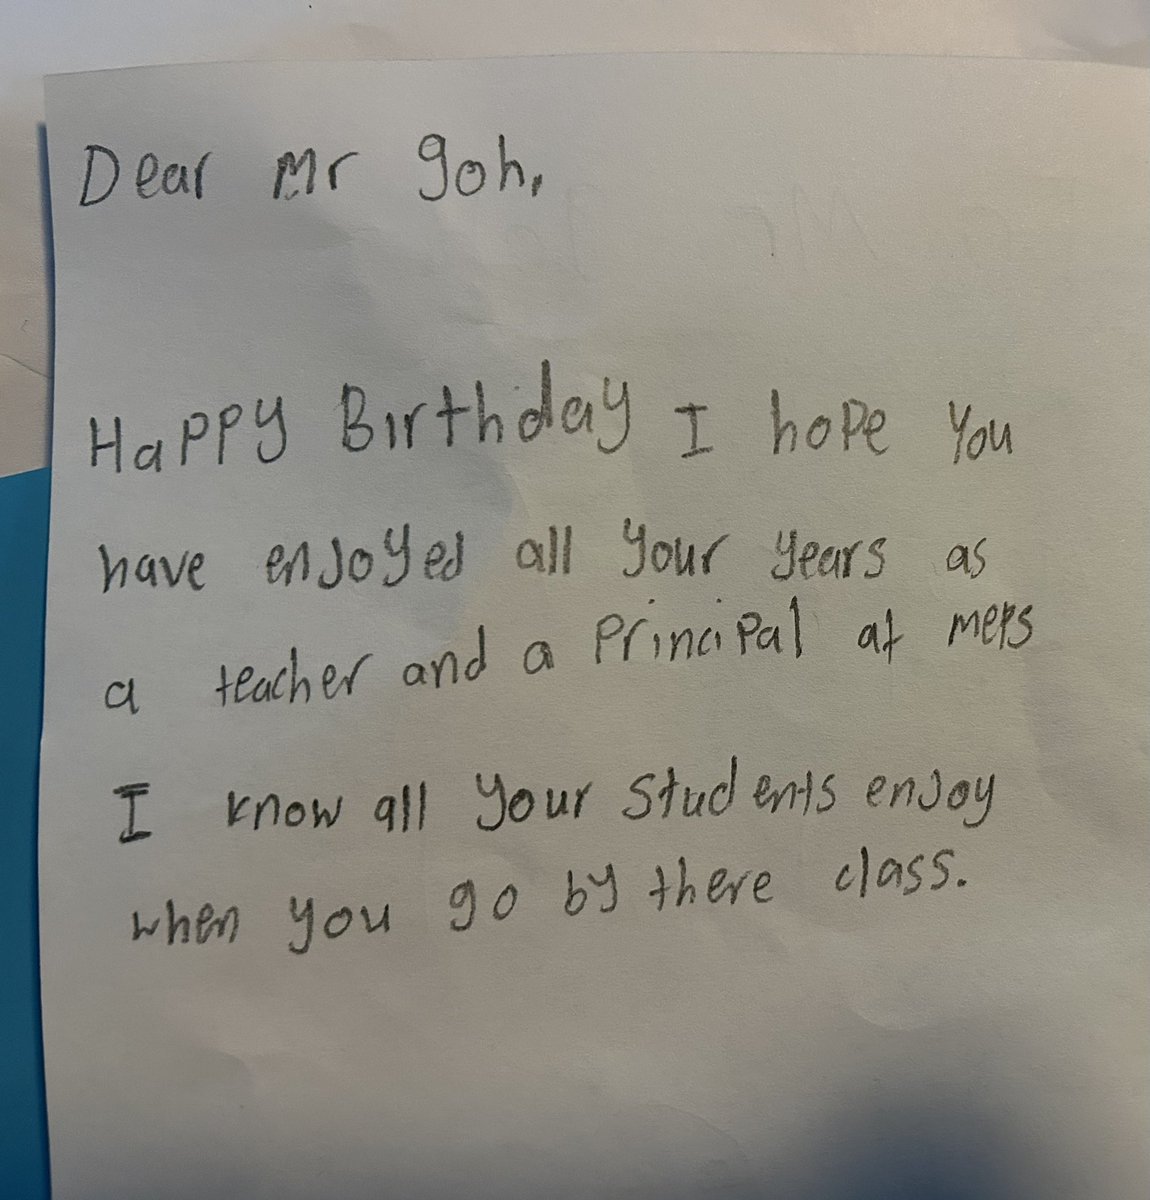 Dear Mr goh,
Happy Birthday I hope you
have enjoyed all your years as
a teacher and a principal at meps
I know all your students enjoy
when you go by there class.